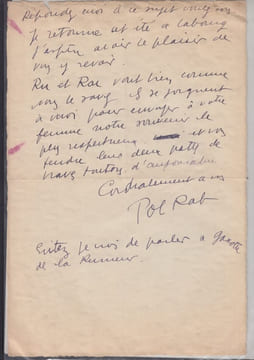 Répondez moi à ce sujet voulez vous
Je retourne cet été à Cabourg
J'espère avoir le plaisir de
vous y revoir.
Ric et Rac vont bien comme
vous le savez. Ils se joignent
à moi pour envoyer à votre
femme notre souvenir le
plus respectueux et vous
tendre leurs deux pattes de
braves toutous
Cordialement à vous
Pol Rab
de parler à
de la Rumeur.